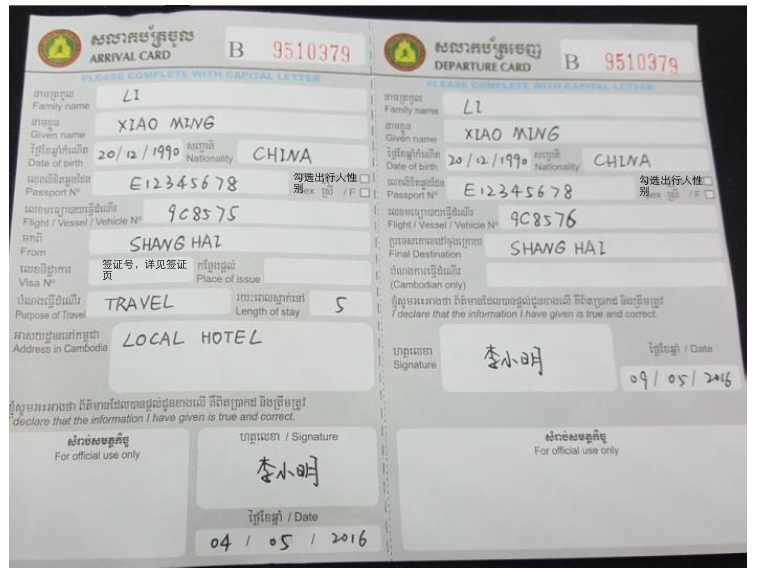 សលាកប័ត្រចូល
ARRIVAL CARD
B 9510379
PLEASE COMPLETE WITH CAPITAL LETTER
នាមត្រកូល
Family name
LI
នាមខ្លួន
Given name
XIAO MING
ថ្ងៃខែឆ្នាំកំណើត
Date of birth
20/12/1990
សញ្ជាតិ
Nationality
CHINA
លេខលិខិតឆ្លងដែន
Passport Nº
E12345678
勾选出行人性别
Sex ស្រី / F
លេខមធ្យោបាយធ្វើដំណើរ
Flight / Vessel / Vehicle Nº
9C8575
មកពី
From
SHANG HAI
លេខទិដ្ឋាការ
Visa Nº
签证号，详见签证页
កន្លែងផ្តល់
Place of issue
បំណងធ្វើដំណើរ
Purpose of Travel
TRAVEL
រយៈពេលស្នាក់នៅ
Length of stay
5
អាសយដ្ឋាននៅកម្ពុជា
Address in Cambodia
LOCAL HOTEL
ខ្ញុំសូមអះអាងថា ព័ត៌មានដែលបានផ្តល់ជូនខាងលើ គឺពិតប្រាកដ និងត្រឹមត្រូវ
I declare that the information I have given is true and correct.
សំរាប់សមត្ថកិច្ច
For official use only
ហត្ថលេខា / Signature
李小明
ថ្ងៃខែឆ្នាំ / Date
04 / 05 / 2016
សលាកប័ត្រចេញ
DEPARTURE CARD
B 9510379
PLEASE COMPLETE WITH CAPITAL LETTER
នាមត្រកូល
Family name
LI
នាមខ្លួន
Given name
XIAO MING
ថ្ងៃខែឆ្នាំកំណើត
Date of birth
20/12/1990
សញ្ជាតិ
Nationality
CHINA
លេខលិខិតឆ្លងដែន
Passport Nº
E12345678
勾选出行人性别
Sex ស្រី / F
លេខមធ្យោបាយធ្វើដំណើរ
Flight / Vessel / Vehicle Nº
9C8576
ប្រទេសគោលដៅចុងក្រោយ
Final Destination
SHANG HAI
បំណងការធ្វើដំណើរ
(Cambodian only)
ខ្ញុំសូមអះអាងថា ព័ត៌មានដែលបានផ្តល់ជូនខាងលើ គឺពិតប្រាកដ និងត្រឹមត្រូវ
I declare that the information I have given is true and correct.
ហត្ថលេខា
Signature
李小明
ថ្ងៃខែឆ្នាំ / Date
09 / 05 / 2016
សំរាប់សមត្ថកិច្ច
For official use only